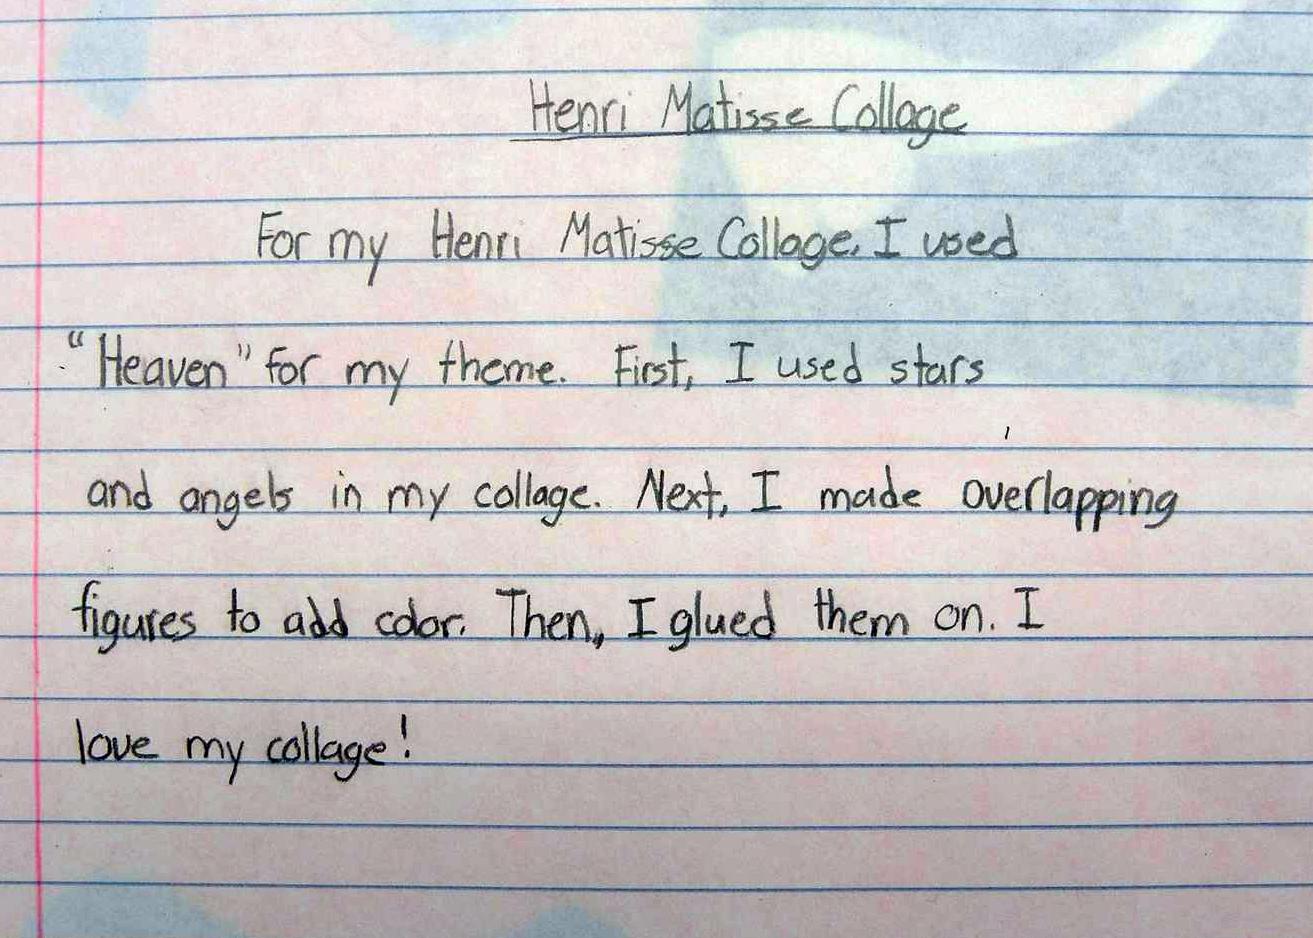 Henri Matisse Collage
For my Henri Matisse Collage, I used
"Heaven" for my theme. First, I used stars
and angels in my collage. Next, I made overlapping
figures to add color. Then, I glued them on. I
love my collage!